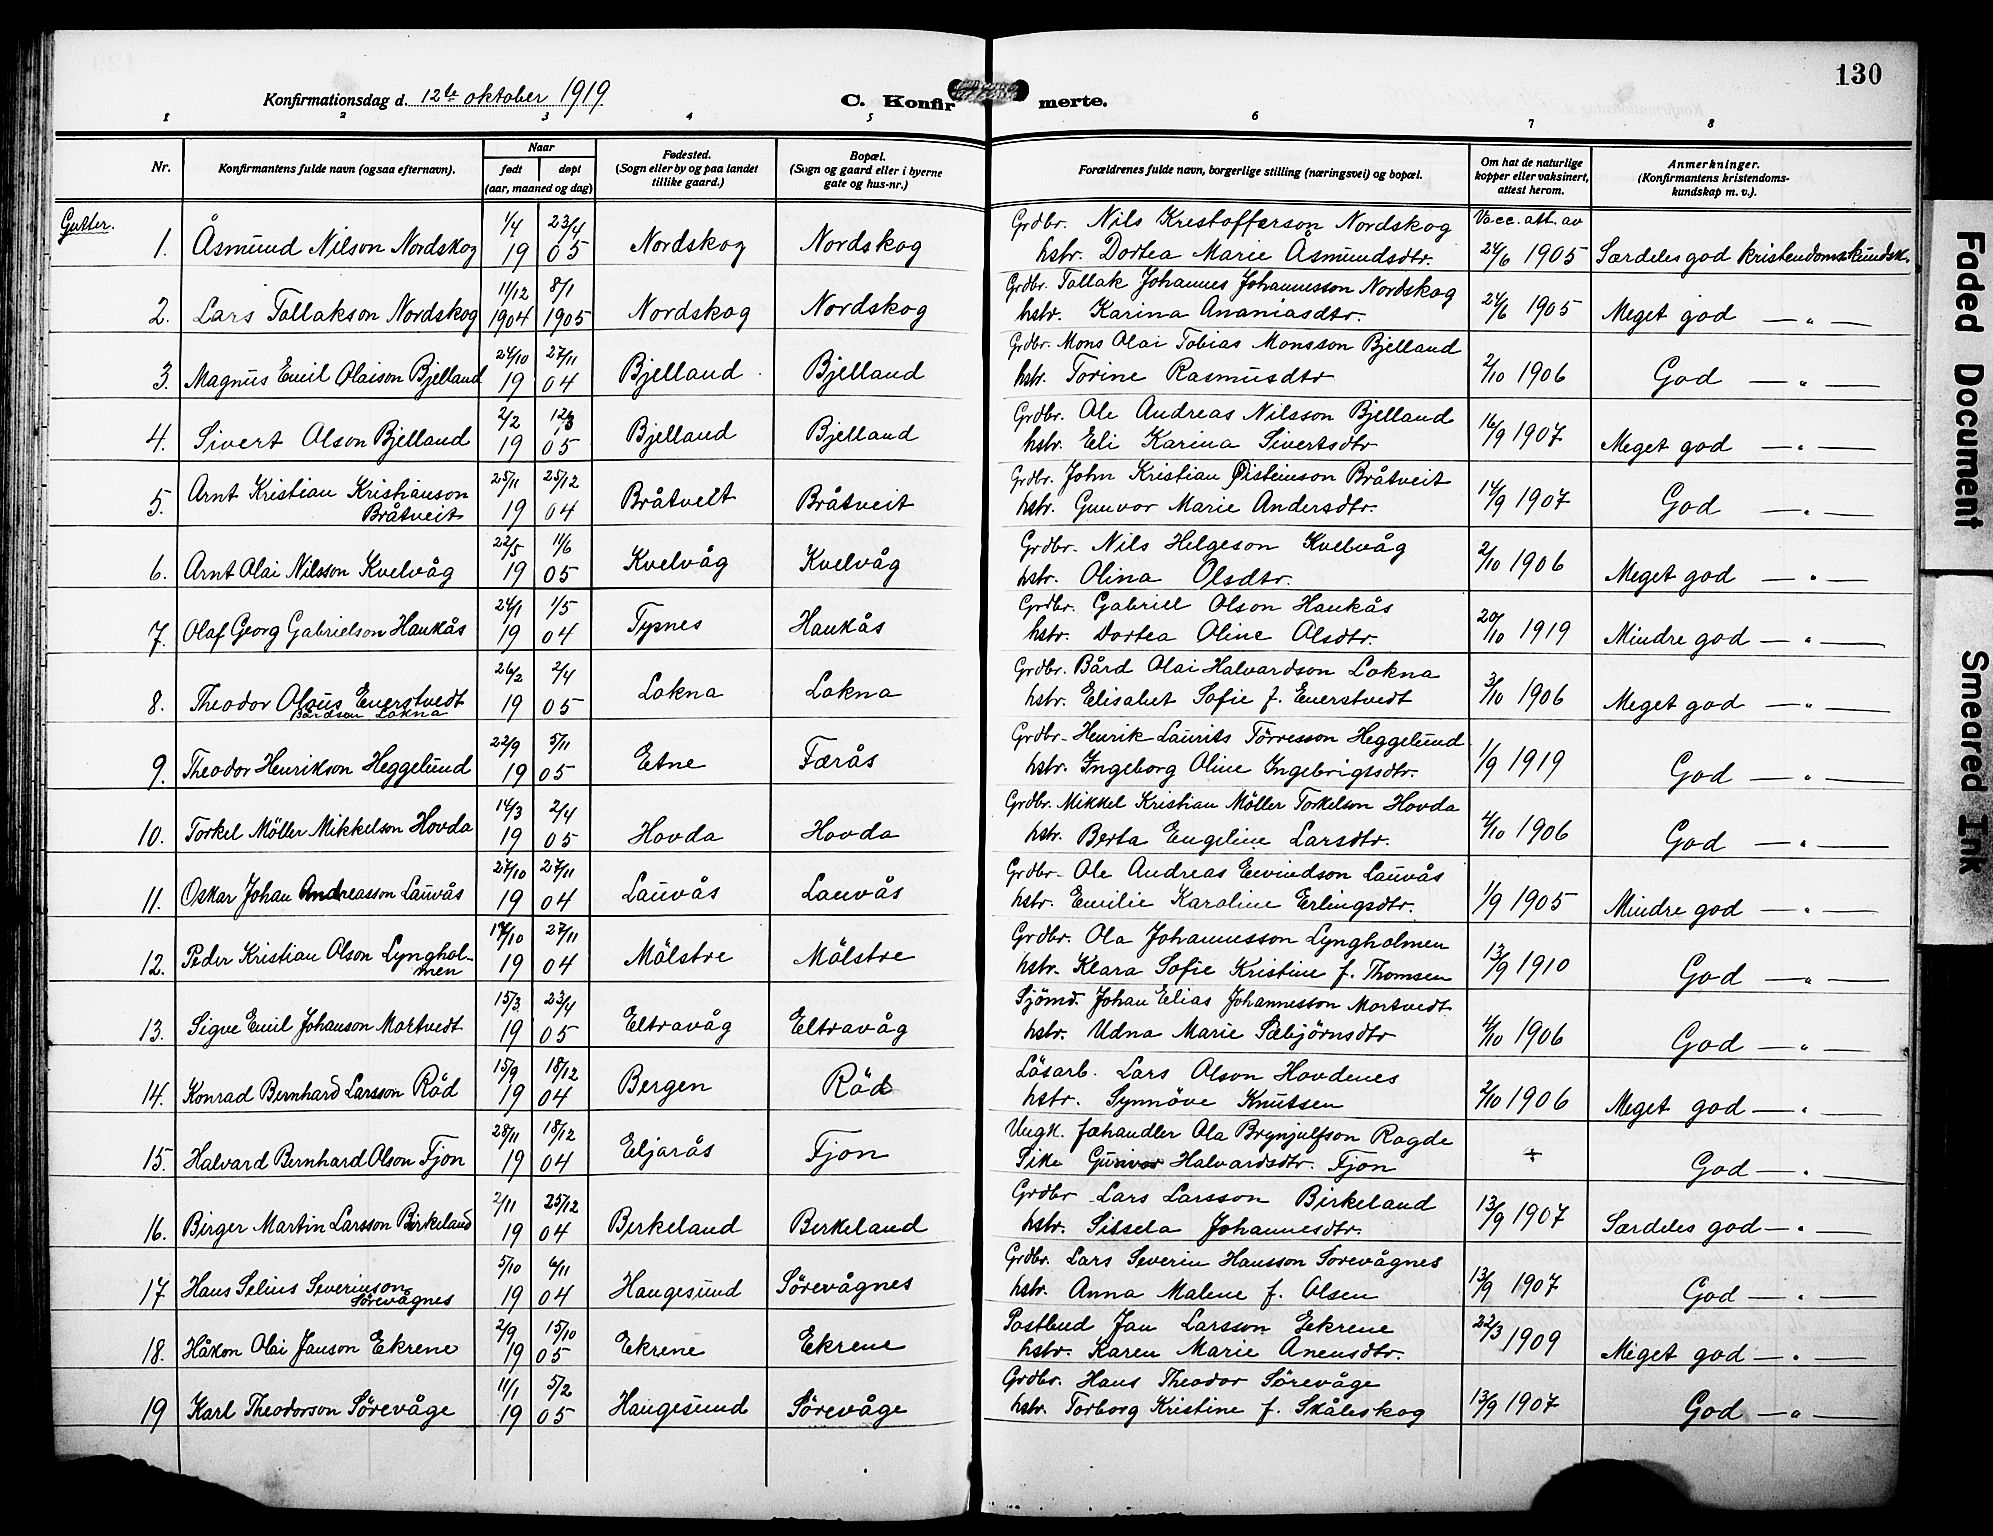 130
Konfirmationsdag d. 12te oktober 1919
C. Konfirmerte.
1 2 3 4 5 6 7 8
Nr. Konfirmantens fulde navn (ogsaa efternavn). Naar født døpt (aar, maaned og dag) Fødested. (Sogn eller by og paa landet tillike gaard.) Bopæl. (Sogn og gaard eller i byerne gate og hus-nr.) Forældrenes fulde navn, borgerlige stilling (næringsvei) og bopæl. Om hat de naturlige kopper eller vaksinert, attest herom. Anmerkninger. (Konfirmantens kristendoms-kundskap m. v.).
Gutter.
1/4 23/4 Grdbr. Nils Krestofferson Nordskog Vacc. att. av
1. Åsmund Nilson Nordskog 19 05 Nordskog Nordskog hstr. Dortea Marie Åsmundsdtr. 24/6 1905 Særdeles god kristendomskundsk.
11/12 8/1 Grdbr. Tollak Johannes Johannesson Nordskog
2. Lars Tollakson Nordskog 1904 1905 Nordskog Nordskog hstr. Karina Ananiasdtr. 24/6 1905 Meget god — „ —
24/10 27/11 Grdbr. Mons Olai Tobias Monsson Bjelland
3. Magnus Emil Olaison Bjelland 19 04 Bjelland Bjelland hstr. Torine Rasmusdtr 2/10 1906 God — „ —
2/2 12/3 Grdbr. Ole Andreas Nilsson Bjelland
4. Sivert Olson Bjelland 19 05 Bjelland Bjelland hstr. Eli Karina Sivertsdtr 16/9 1907 Meget god — „ —
25/11 25/12 Grdbr. John Kristian Øisteinson Bråtveit
5. Arnt Kristian Kristianson Bråtveit 19 04 Bråtveit Bråtveit hstr. Gunvor Marie Andersdtr. 14/9 1907 God — „ —
22/5 11/6 Grdbr. Nils Helgeson Kvelvåg
6. Arnt Olai Nilsson Kvelvåg 19 05 Kvelvåg Kvelvåg hstr. Olina Olsdtr. 2/10 1906 Meget god — „ —
24/1 1/5 Grdbr. Gabriel Olson Haukås
7. Olaf Georg Gabrielson Haukås 19 04 Tysnes Haukås hstr. Dortea Oline Olsdtr. 20/10 1919 Mindre god — „ —
26/2 2/4 Grdbr. Bård Olai Halvardson Lokna
8. Theodor Olaus Enerstvedt Bårdson Lokna 19 05 Lokna Lokna hstr. Elisabet Sofie f. Enerstvedt 3/10 1906 Meget god — „ —
22/9 5/11 Grdbr. Henrik Laurits Törresson Heggelund
9. Theodor Henrikson Heggelund 19 05 Etne Færås hstr. Ingeborg Oline Ingebrigtsdtr. 1/9 1919 God — „ —
14/3 2/4 Grdbr. Mikkel Kristian Möller Torkelson Hovda
10. Torkel Möller Mikkelson Hovda 19 05 Hovda Hovda hstr. Berta Engeline Larsdtr. 4/10 1906 God — „ —
27/10 27/11 Grdbr. Ole Andreas Eivindson Lauvås
11. Oskar Johan Andreasson Lauvås 19 04 Lauvås Lauvås hstr. Emilie Karoline Erlingsdtr. 1/9 1905 Mindre god — „ —
17/10 27/11 Grdbr. Ola Johannesson Lyngholmen
12. Peder Kristian Olson Lyngholmen 19 04 Mölstre Mölstre hstr. Klara Sofie Kristine f. Thomsen 13/9 1910 God — „ —
15/3 23/4 Sjömd. Johan Elias Johannesson Mortvedt
13. Sigve Emil Johanson Mortvedt 19 05 Eltravåg Eltravåg hstr. Udna Marie Sæbjörnsdtr 4/10 1906 God — „ —
15/9 18/12 Lösarb. Lars Olson Hovdenes
14. Konrad Bernhard Larsson Röd 19 04 Bergen Röd hstr. Synnöve Knutsen 2/10 1906 Meget god — „ —
28/11 18/12 Ungk. fæhandler Ola Brynjulfson Ragde
15. Halvard Bernhard Olson Fjon 19 04 Eljarås Fjon Pike Gunvor Halvardsdtr. Fjon + God — „
2/11 25/12 Grdbr Lars Larsson Birkeland
16. Birger Martin Larsson Birkeland 19 04 Birkeland Birkeland hstr. Sissela Johannesdtr. 13/9 1907 Særdeles god — „
5/10 6/11 Grdbr. Lars Severin Hansson Sorevågnes
17 Hans Selius Severinson Sörevågnes 19 04 Haugesund Sörevågnes hstr. Anna Malene f. Olsen 13/9 1907 God — „ —
2/9 15/10 Postbud Jan Larsson Eekrene
18. Håkon Olai Janson Ekrene 19 05 Ekrene Ekrene hstr. Karen Marie Anensdtr. 22/3 1909 Meget god — „ —
11/1 5/2 Grdbr. Hans Theodor Sörevåge
19 Karl Theodorson Sörevåge 19 05 Haugesund Sörevåge hstr. Torborg Kristine f. Skåleskog 13/9 1907 God — „ —
Faded Document
Smeared Ink